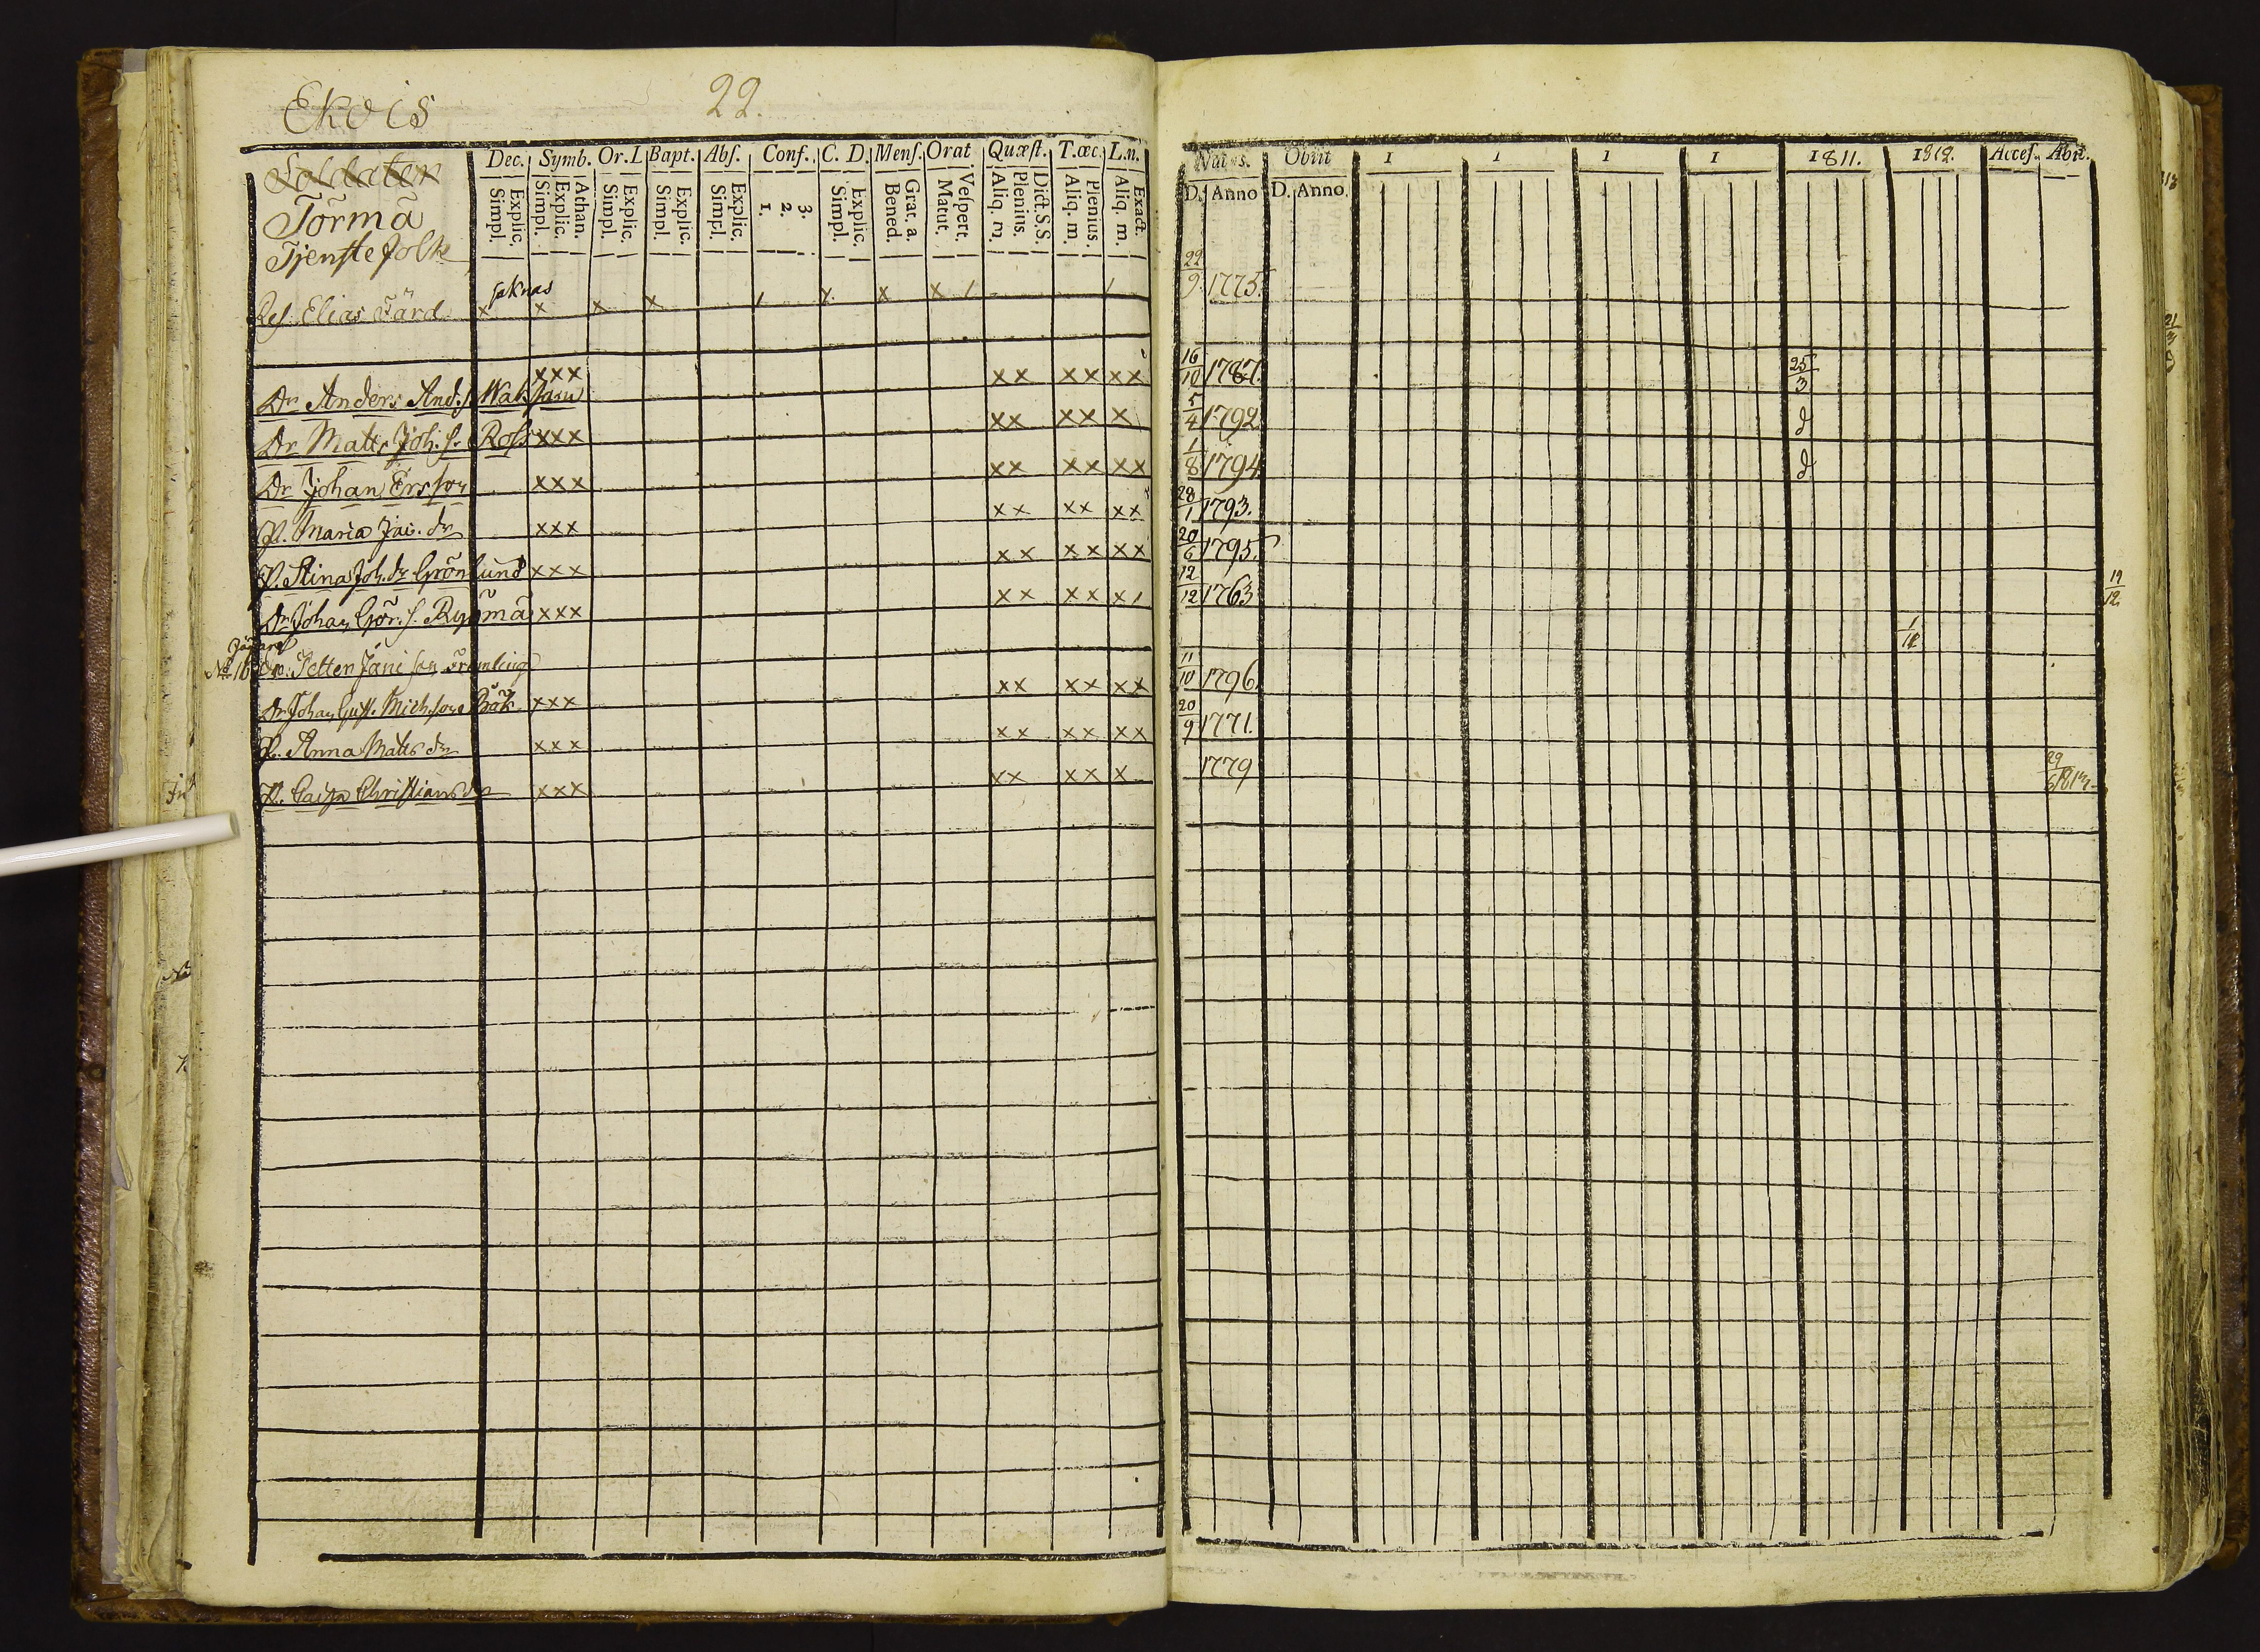 Ekois 22.
Soldaten
Törmä
Tjenstefolk
Dec. Symb. Or. L Bapt. Abſ. Conf. C. D. Menſ. Orat Quæſt. T. œc. L. n.
Simpl. Explic. Simpl. Explic. Athan. Simpl. Explic. Simpl. Explic. Simpl. Explic. 1. 2. 3. Simpl. Explic. Bened. Grat. a. Matut. Veſpert. Aliq. m. Plenius. Dict. S. S. Aliq. m. Plenius. Aliq. m. Exact.
Natus. Obiit 1 1 1 1 1811. 1812. Acceſ. Abit.
D. Anno D. Anno.
saknas
Res. Elias Färd x x x x / x x x / / 22/9 1775.
Dr Anders And. s. xxx xx xx xx 16/10 1787. 25/3
Dr Matts Joh. s. Ross xxx xx xx x 5/4 1792. d
Dr Johan Ersson xxx xx xx xx 1/8 1794 d
P. Maria Jac. dr xxx xx xx xx 28/1 1793.
P. Stina Joh. dr Grönlund xxx xx xx xx 20/6 1795.
Dr Johan Gör. s. xxx xx xx x/ 12/12 1763 19/12
No 16 Petter Jani son Främling
Dr Johan Gust. Michsson Bäk xxx xx xx xx 11/10 1796.
P. Anna Matts dr xxx xx xx xx 20/9 1771.
P. Caisa Christians dr xxx xx xx x 1779